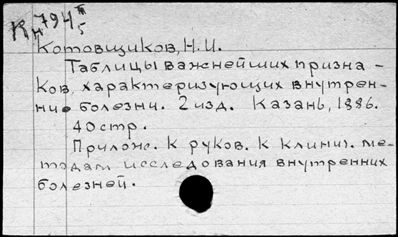 Кн 794 III/5
Котовщиков, Н.И.
Таблицы важнейших призна-
ков, характеризующих внутрен-
ние болезни. 2 изд. Казань, 1886.
40 стр.
Прилож. к руков. к клинич. ме-
тодам исследования внутренних
болезней.